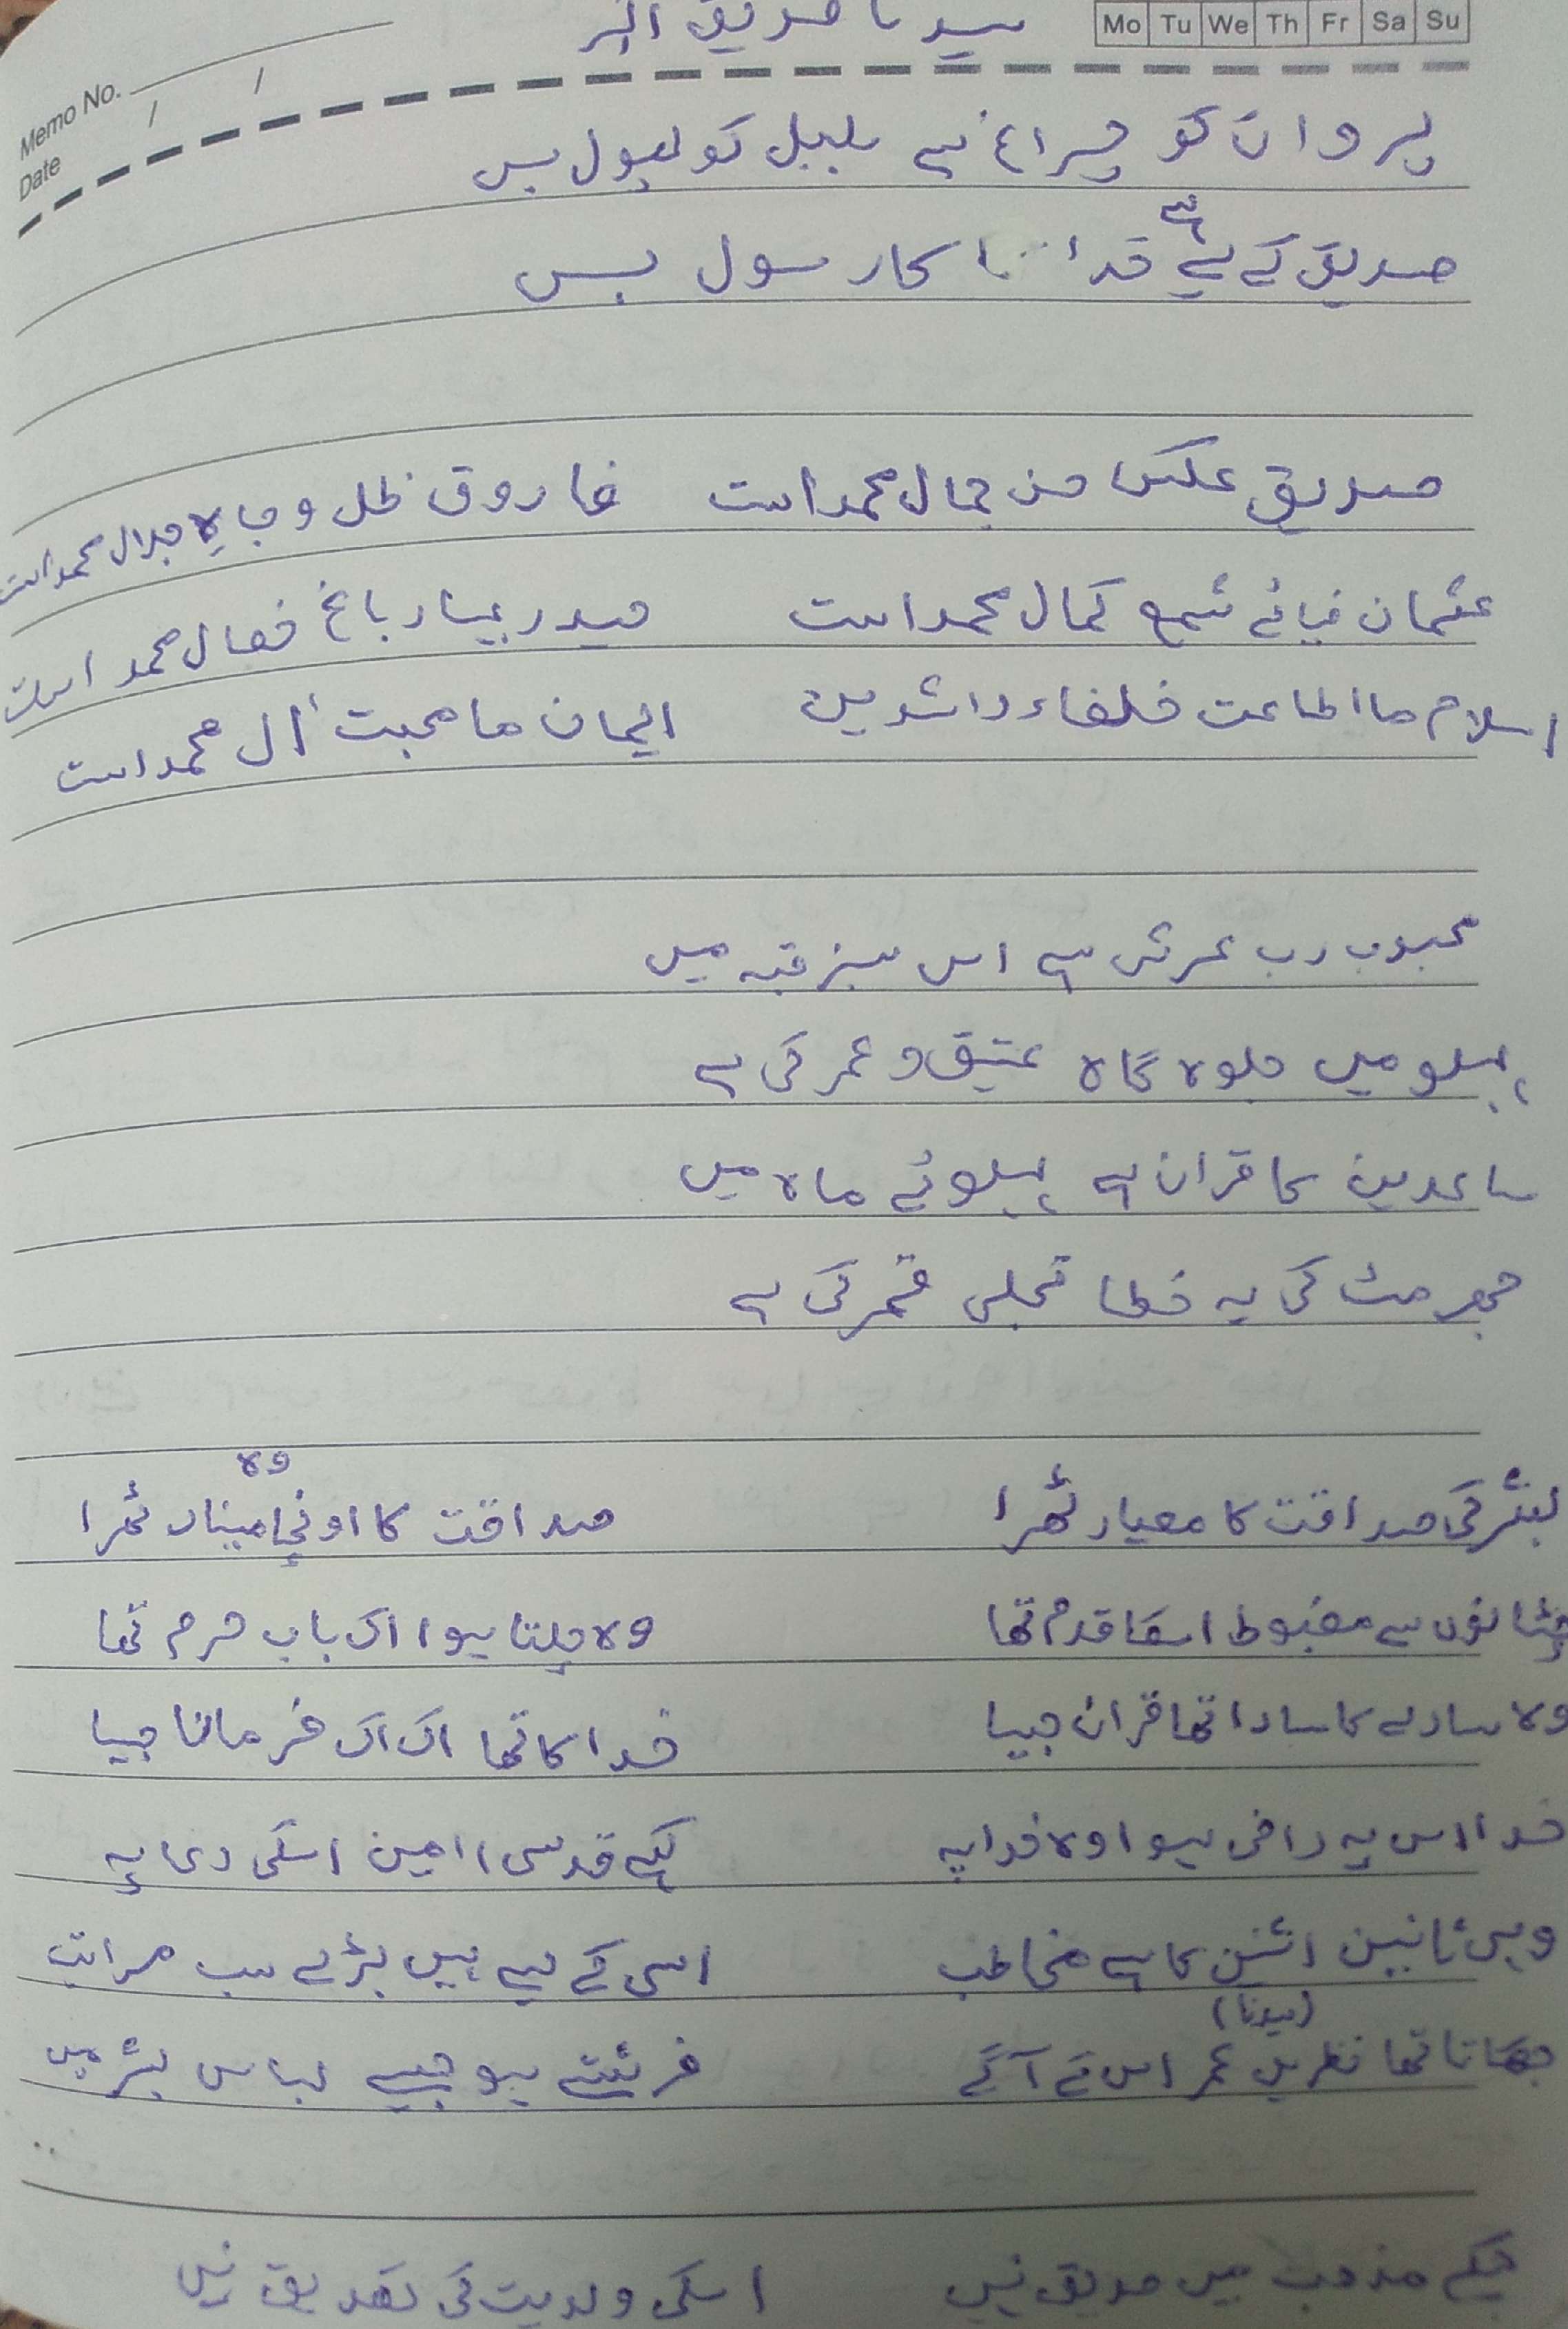 Mo Tu We Th Fr Sa Su
سیدنا صدیق اکبر
Memo No.
Date / /
پروانے کو چراغ ہے بلبل کو پھول بس
صدیق کے لیے ہے خدا کا رسول بس
صدیق عکس حسن جمال محمد است فاروق ظل و جاہ جلال محمد است
عثمان ضیائے شمع کمال محمد است حیدر بہار باغ خصال محمد است
اسلام ما اطاعت خلفاء راشدین ایمان ما محبت آل محمد است
محبوب رب عرش ہے اس سبز قبہ میں
پہلو میں جلوہ گاہ عتیق و عمر کی ہے
ساعدین کا قران ہے پہلوئے ماہ میں
جھرمٹ کی یہ خطا تجلی قمر کی ہے
بشر کی صداقت کا معیار ٹھرا صداقت کا اونچا وہ مینار ٹھرا
چٹانوں سے مضبوط اسکا قدم تھا وہ چلتا ہوا اک باب حرم تھا
وہ سارے کا سارا تھا قران جیسا خدا کا تھا اک اک فرمانا جیسا
خدا اس پہ راضی ہوا وہ خدا پہ کہے قدسی امین اسکی دعا پہ
وہی ثانیین اثنین کا ہے مخاطب اسی کے لیے ہیں بڑے سب مراتب
جھکاتا تھا نظریں (سیدنا) عمر اس کے آگے فرشتے ہو جیسے لباس بشر میں
جسکے مذہب میں صدیق نہیں اسکی ولدیت کی تصدیق نہیں